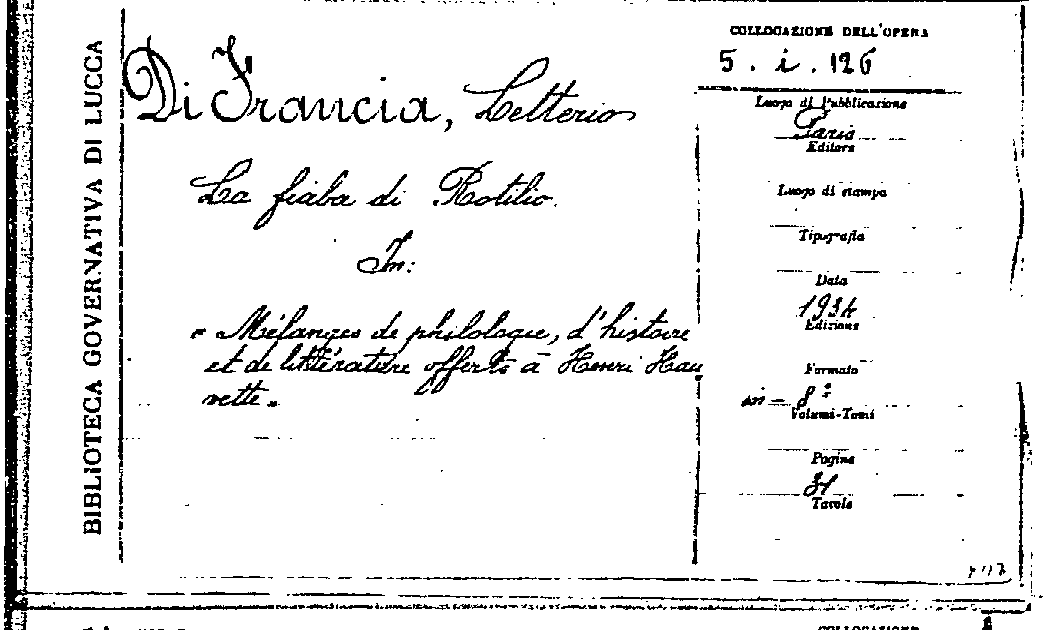 BIBLIOTECA GOVERNATIVA DI LUCCA
Di Francia, Letterio
La fiaba di Rotilio.
In:
« Mélanges de philologie, d'histoire
et de littérature offerts à Henri Hau
vette »
COLLOCAZIONE DELL'OPERA
5. i. 126
Luogo di Pubblicazione
Paris
Editore
Luogo di stampa
Tipografia
Data
1934
Edizione
Formato
in-8º
Volumi-Tomi
Pagine
Tavole
COLLOCAZIONE